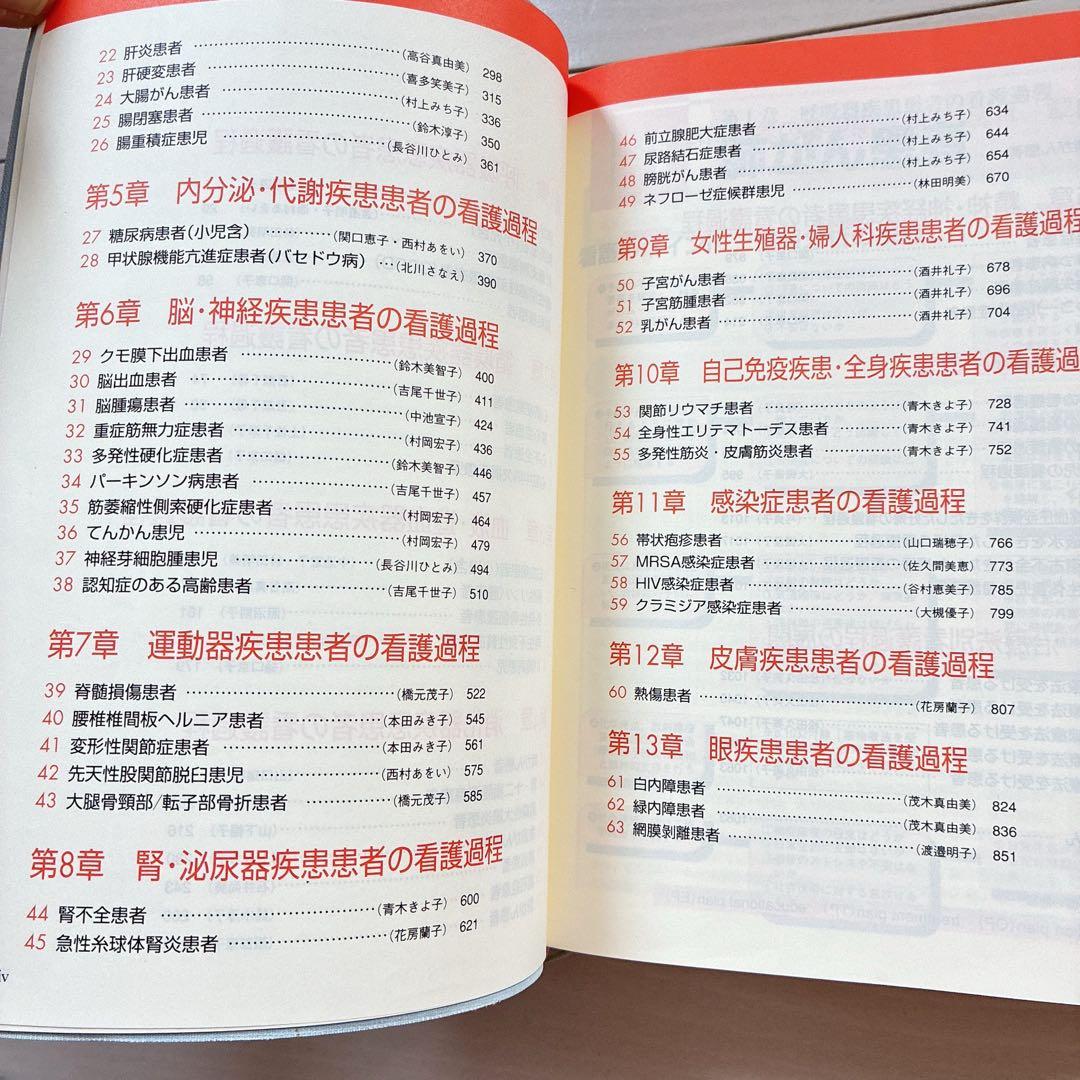 22 肝炎患者 ……………………(高谷真由美) 298
23 肝硬変患者 ……………………(喜多笑美子) 315
24 大腸がん患者 ……………………(村上みち子) 336
25 腸閉塞患者 ……………………(鈴木淳子) 350
26 腸重積症患児 ……………………(長谷川ひとみ) 361
第5章 内分泌・代謝疾患患者の看護過程
27 糖尿病患者(小児含) …………(関口恵子・西村あをい) 370
28 甲状腺機能亢進症患者(バセドウ病) …(北川さなえ) 390
第6章 脳・神経疾患患者の看護過程
29 クモ膜下出血患者 ……………………(鈴木美智子) 400
30 脳出血患者 ……………………(吉尾千世子) 411
31 脳腫瘍患者 ……………………(中池宣子) 424
32 重症筋無力症患者 ……………………(村岡宏子) 436
33 多発性硬化症患者 ……………………(鈴木美智子) 446
34 パーキンソン病患者 ……………………(吉尾千世子) 457
35 筋萎縮性側索硬化症患者 ……………………(村岡宏子) 464
36 てんかん患児 ……………………(村岡宏子) 479
37 神経芽細胞腫患児 ……………………(長谷川ひとみ) 494
38 認知症のある高齢患者 ……………………(吉尾千世子) 510
第7章 運動器疾患患者の看護過程
39 脊髄損傷患者 ……………………(橋元茂子) 522
40 腰椎椎間板ヘルニア患者 ……………………(本田みき子) 545
41 変形性関節症患者 ……………………(本田みき子) 561
42 先天性股関節脱臼患児 ……………………(西村あをい) 575
43 大腿骨頸部/転子部骨折患者 ……………………(橋元茂子) 585
第8章 腎・泌尿器疾患患者の看護過程
44 腎不全患者 ……………………(青木きよ子) 600
45 急性糸球体腎炎患者 ……………………(花房蘭子) 621
iv
46 前立腺肥大症患者 ……………………(村上みち子) 634
47 尿路結石症患者 ……………………(村上みち子) 644
48 膀胱がん患者 ……………………(村上みち子) 654
49 ネフローゼ症候群患児 ……………………(林田明美) 670
第9章 女性生殖器・婦人科疾患患者の看護過程
50 子宮がん患者 ……………………(酒井礼子) 678
51 子宮筋腫患者 ……………………(酒井礼子) 696
52 乳がん患者 ……………………(酒井礼子) 704
第10章 自己免疫疾患・全身疾患患者の看護過
53 関節リウマチ患者 ……………………(青木きよ子) 728
54 全身性エリテマトーデス患者 ……………………(青木きよ子) 741
55 多発性筋炎・皮膚筋炎患者 ……………………(青木きよ子) 752
第11章 感染症患者の看護過程
56 帯状疱疹患者 ……………………(山口瑞穂子) 766
57 MRSA感染症患者 ……………………(佐久間美恵) 773
58 HIV感染症患者 ……………………(谷村恵美子) 785
59 クラミジア感染症患者 ……………………(大槻優子) 799
第12章 皮膚疾患患者の看護過程
60 熱傷患者 ……………………(花房蘭子) 807
第13章 眼疾患患者の看護過程
61 白内障患者 ……………………(茂木真由美) 824
62 緑内障患者 ……………………(茂木真由美) 836
63 網膜剝離患者 ……………………(渡邉明子) 851